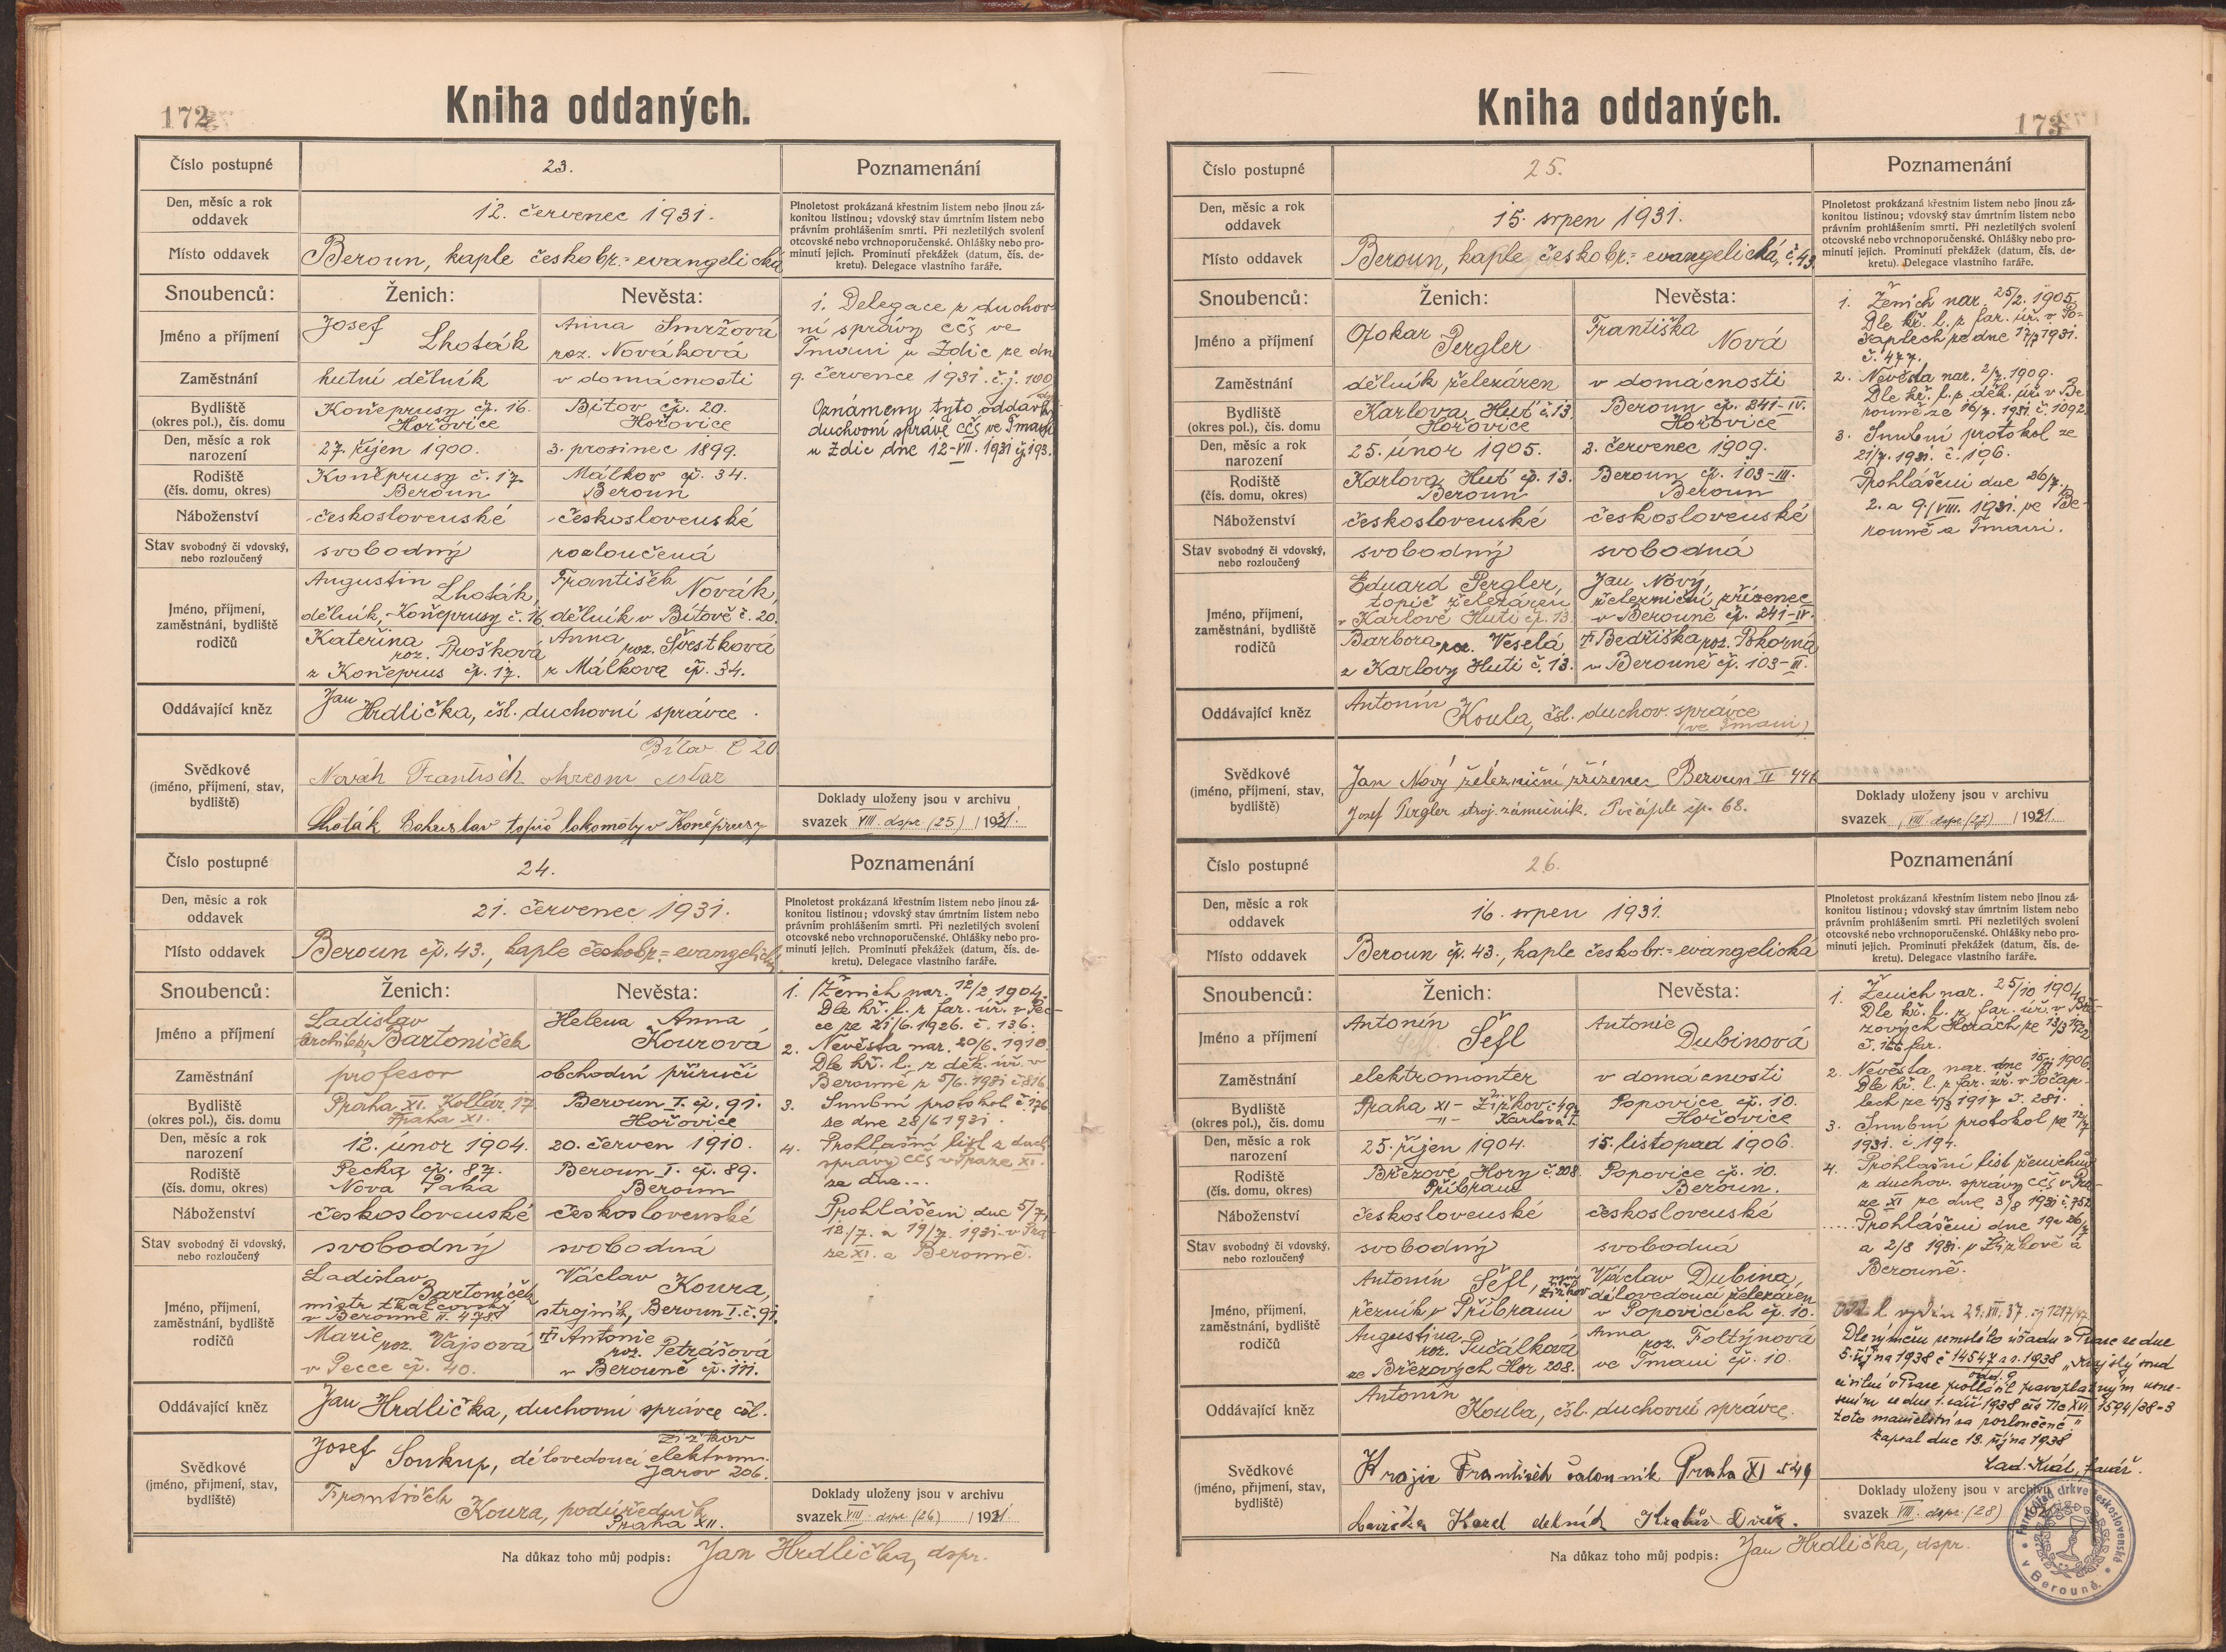 172
Kniha oddaných.
Číslo postupné
23.
Poznamenání
Den, měsíc a rok
oddavek
12. červenec 1931.
Plnoletost prokázaná křestním listem nebo jinou zá-
konitou listinou; vdovský stav úmrtním listem nebo
právním prohlášením smrti. Při nezletilých svolení
otcovské nebo vrchnoporučenské. Ohlášky nebo pro-
minutí jejich. Prominutí překážek (datum, čís. de-
kretu). Delegace vlastního faráře.
Místo oddavek
Beroun, kaple českobr.=evangelická
Snoubenců:
Ženich:
Nevěsta:
Jméno a příjmení
Josef
Lhoták
Anna Smržová
roz. Nováková
Zaměstnání
hutní dělník
v domácnosti
Bydliště
(okres pol.), čís. domu
Koněprusy čp. 16.
Hořovice
Bítov čp. 20.
Hořovice
Den, měsíc a rok
narození
27. říjen 1900.
3. prosinec 1899.
Rodiště
(čís. domu, okres)
Koněprusy č. 17
Beroun
Málkov čp. 34.
Beroun
Náboženství
československé
československé
Stav svobodný či vdovský,
nebo rozloučený
svobodný
rozloučená
Jméno, příjmení,
zaměstnání, bydliště
rodičů
Augustin
Lhoták,
dělník, Koněprusy č. 16.
Kateřina
roz. Prošková
z Koněprus čp. 17.
František
Novák,
dělník v Bítově č. 20.
Anna
roz. Švestková
z Málkova čp. 34.
Oddávající kněz
Jan
Hrdlička, čsl. duchovní správce.
Svědkové
(jméno, příjmení, stav,
bydliště)
Bítov č 20
Novák František
Lhoták Bohuslav topič lokomoty v Koněprusy
1. Delegace z duchov-
ní správy cčs ve
Tmani u Zdic ze dne
9. července 1931. č.j. 190.
Oznámeny tyto oddavky
duchovní správě cčs ve Tmani
u Zdic dne 12-VII. 1931 čj 193.
Doklady uloženy jsou v archivu
svazek VIII. dspr (25) / 1931.
Číslo postupné
24.
Poznamenání
Den, měsíc a rok
oddavek
21. červenec 1931.
Plnoletost prokázaná křestním listem nebo jinou zá-
konitou listinou; vdovský stav úmrtním listem nebo
právním prohlášením smrti. Při nezletilých svolení
otcovské nebo vrchnoporučenské. Ohlášky nebo pro-
minutí jejich. Prominutí překážek (datum, čís. de-
kretu). Delegace vlastního faráře.
Místo oddavek
Beroun čp. 43., kaple českobr.=evangelická
Snoubenců:
Ženich:
Nevěsta:
Jméno a příjmení
Ladislav
architekt, Bartoníček
Helena Anna
Kourová
Zaměstnání
profesor
obchodní příručí
Bydliště
(okres pol.), čís. domu
Praha XI. Kollár. 17.
Praha XI.
Beroun I. čp. 91.
Hořovice
Den, měsíc a rok
narození
12. únor 1904.
20. červen 1910.
Rodiště
(čís. domu, okres)
Pecka čp. 87.
Nova Paka
Beroun I. čp. 89.
Beroun
Náboženství
československé
československé
Stav svobodný či vdovský,
nebo rozloučený
svobodný
svobodná
Jméno, příjmení,
zaměstnání, bydliště
rodičů
Ladislav
Bartoníček
mistr tkalcovský
v Berouně II. 478
Marie
roz. Vajsová
v Pecce čp. 40.
Václav
Koura,
strojník, Beroun I. č. 91.
Antonie
roz. Petrášová
v Berouně čp. 111.
Oddávající kněz
Jan
Hrdlička, duchovní správce čsl.
Svědkové
(jméno, příjmení, stav,
bydliště)
Žižkov
Josef Soukup, dělovedoucí elektrom.
Jarov 206.
František
Koura, podúředník
Praha XII.
1. Ženich nar. 12/2 1904.
Dle kř. l. z far. úř. v Pec-
ce ze 21/6. 1926. č. 136.
2. Nevěsta nar. 20/6. 1910
Dle kř. l. z děk. úř. v
Berouně z 5/6. 1931 č 816
3. Snubní protokol č. 176
ze dne 28/6 1931.
4. Prohlašní list z duch.
správy cčs v Praze XI.
ze dne...
Prohlášení dne 5/7,
12./7. a 19/7. 1931. v Pra-
ze XI. a Berouně.
Doklady uloženy jsou v archivu
svazek VIII. dspr (26) / 1931.
Na důkaz toho můj podpis: Jan Hrdlička, dspr.
173
Kniha oddaných.
Číslo postupné
25.
Poznamenání
Den, měsíc a rok
oddavek
15. srpen 1931.
Plnoletost prokázaná křestním listem nebo jinou zá-
konitou listinou; vdovský stav úmrtním listem nebo
právním prohlášením smrti. Při nezletilých svolení
otcovské nebo vrchnoporučenské. Ohlášky nebo pro-
minutí jejich. Prominutí překážek (datum, čís. de-
kretu). Delegace vlastního faráře.
Místo oddavek
Beroun, kaple českobr.=evangelická, č. 43
Snoubenců:
Ženich:
Nevěsta:
Jméno a příjmení
Otokar
Pergler
Františka
Nová
Zaměstnání
dělník železáren
v domácnosti
Bydliště
(okres pol.), čís. domu
Karlova Huť č. 13.
Hořovice
Beroun čp. 241-IV.
Hořovice
Den, měsíc a rok
narození
25. únor 1905.
2. červenec 1909.
Rodiště
(čís. domu, okres)
Karlova Huť čp. 13.
Beroun
Beroun čp. 103-III.
Beroun
Náboženství
československé
československé
Stav svobodný či vdovský,
nebo rozloučený
svobodný
svobodná
Jméno, příjmení,
zaměstnání, bydliště
rodičů
Eduard Pergler,
topič železáren
v Karlově Huti čp. 13.
Barbora roz. Veselá
z Karlovy Huti č. 13.
Jan Nový,
železniční zřízenec
v Berouně čp. 241-IV.
Bedřiška roz. Pokorná
v Berouně čp. 103-III.
Oddávající kněz
Antonín
Koula, čsl. duchov. správce
(ve Tmani)
Svědkové
(jméno, příjmení, stav,
bydliště)
Jan Nový železniční zřízenec Beroun II 446
Josef Pergler stroj. zámečník. Počáple čp. 68.
1. Ženich nar. 25/2. 1905
Dle kř. l. z far. úř. v Po-
čaplech ze dne 17/7 1931.
č. 477.
2. Nevěsta nar. 2/7. 1909.
Dle kř. l. z děk. úř. v Be-
rouně ze 16/7. 1931. č. 1092.
3. Snubní protokol ze
21/7. 1931. č. 196.
Prohlášení dne 26/7.,
2. a 9./VIII. 1931. ve Be-
rouně a Tmani.
Doklady uloženy jsou v archivu
svazek VIII. dspr. (27) / 1931.
Číslo postupné
26.
Poznamenání
Den, měsíc a rok
oddavek
16. srpen 1931.
Plnoletost prokázaná křestním listem nebo jinou zá-
konitou listinou; vdovský stav úmrtním listem nebo
právním prohlášením smrti. Při nezletilých svolení
otcovské nebo vrchnoporučenské. Ohlášky nebo pro-
minutí jejich. Prominutí překážek (datum, čís. de-
kretu). Delegace vlastního faráře.
Místo oddavek
Beroun čp. 43., kaple českobr.=evangelická
Snoubenců:
Ženich:
Nevěsta:
Jméno a příjmení
Antonín
Šefl
Antonie
Dubinová
Zaměstnání
elektromonter
v domácnosti
Bydliště
(okres pol.), čís. domu
Praha XI- Žižkov
-"- Karlova
Popovice čp. 10.
Hořovice
Den, měsíc a rok
narození
25. říjen 1904.
15. listopad 1906.
Rodiště
(čís. domu, okres)
Březové Hory č. 208
Příbram
Popovice čp. 10.
Beroun.
Náboženství
československé
československé
Stav svobodný či vdovský,
nebo rozloučený
svobodný
svobodná
Jméno, příjmení,
zaměstnání, bydliště
rodičů
Antonín Šefl, nyní Žižkov
řezník v Příbrami
Augustina
roz. Pučálková
ze Březových Hor 208.
Václav Dubina,
dílovedoucí železáren
v Popovicích čp. 10.
Anna
roz. Foltýnová
ve Tmani čp. 10.
Oddávající kněz
Antonín
Koula, čsl. duchovní správce.
Svědkové
(jméno, příjmení, stav,
bydliště)
Krajíc František čalouník Praha XI
Karel Králův Dvůr.
1. Ženich nar. 25/10 1904
Dle kř. l. z far. úř. v Bře-
zových Horách ze 13/3 1922
č. 166 far.
2. Nevěsta nar. dne 15/11 1906.
Dle kř. l. z far. úř. v Počap-
lech ze 4/3 1917 č. 281.
3. Snubní protokol ze 12/7
1931. č 194.
4. Prohlašní list ženichův
z duchov. správy cčs v Pra-
ze XI ze dne 3/8 1931 č. 752
Prohlášení dne 19 a 26/7
a 2/8 1931. v Žižkově a
Berouně.
Odd. l. vydán 29. XII. 37. čj 1217/37
Dle výměru zemského úřadu v Praze ze dne
5. října 1938 č 14547 a r. 1938 „Krajský soud
odd. 9
civilní v Praze prohlásil pravoplatným usne-
sením ze dne 1. září 1938 čís Nc XVI 1594/38-3
toto manželství za rozloučené“
Zapsal dne 13. října 1938
Lad. Král, farář.
Doklady uloženy jsou v archivu
svazek VIII. dspr. (28)
Na důkaz toho můj podpis: Jan Hrdlička, dspr.
Farní úřad církve československé v Berouně.